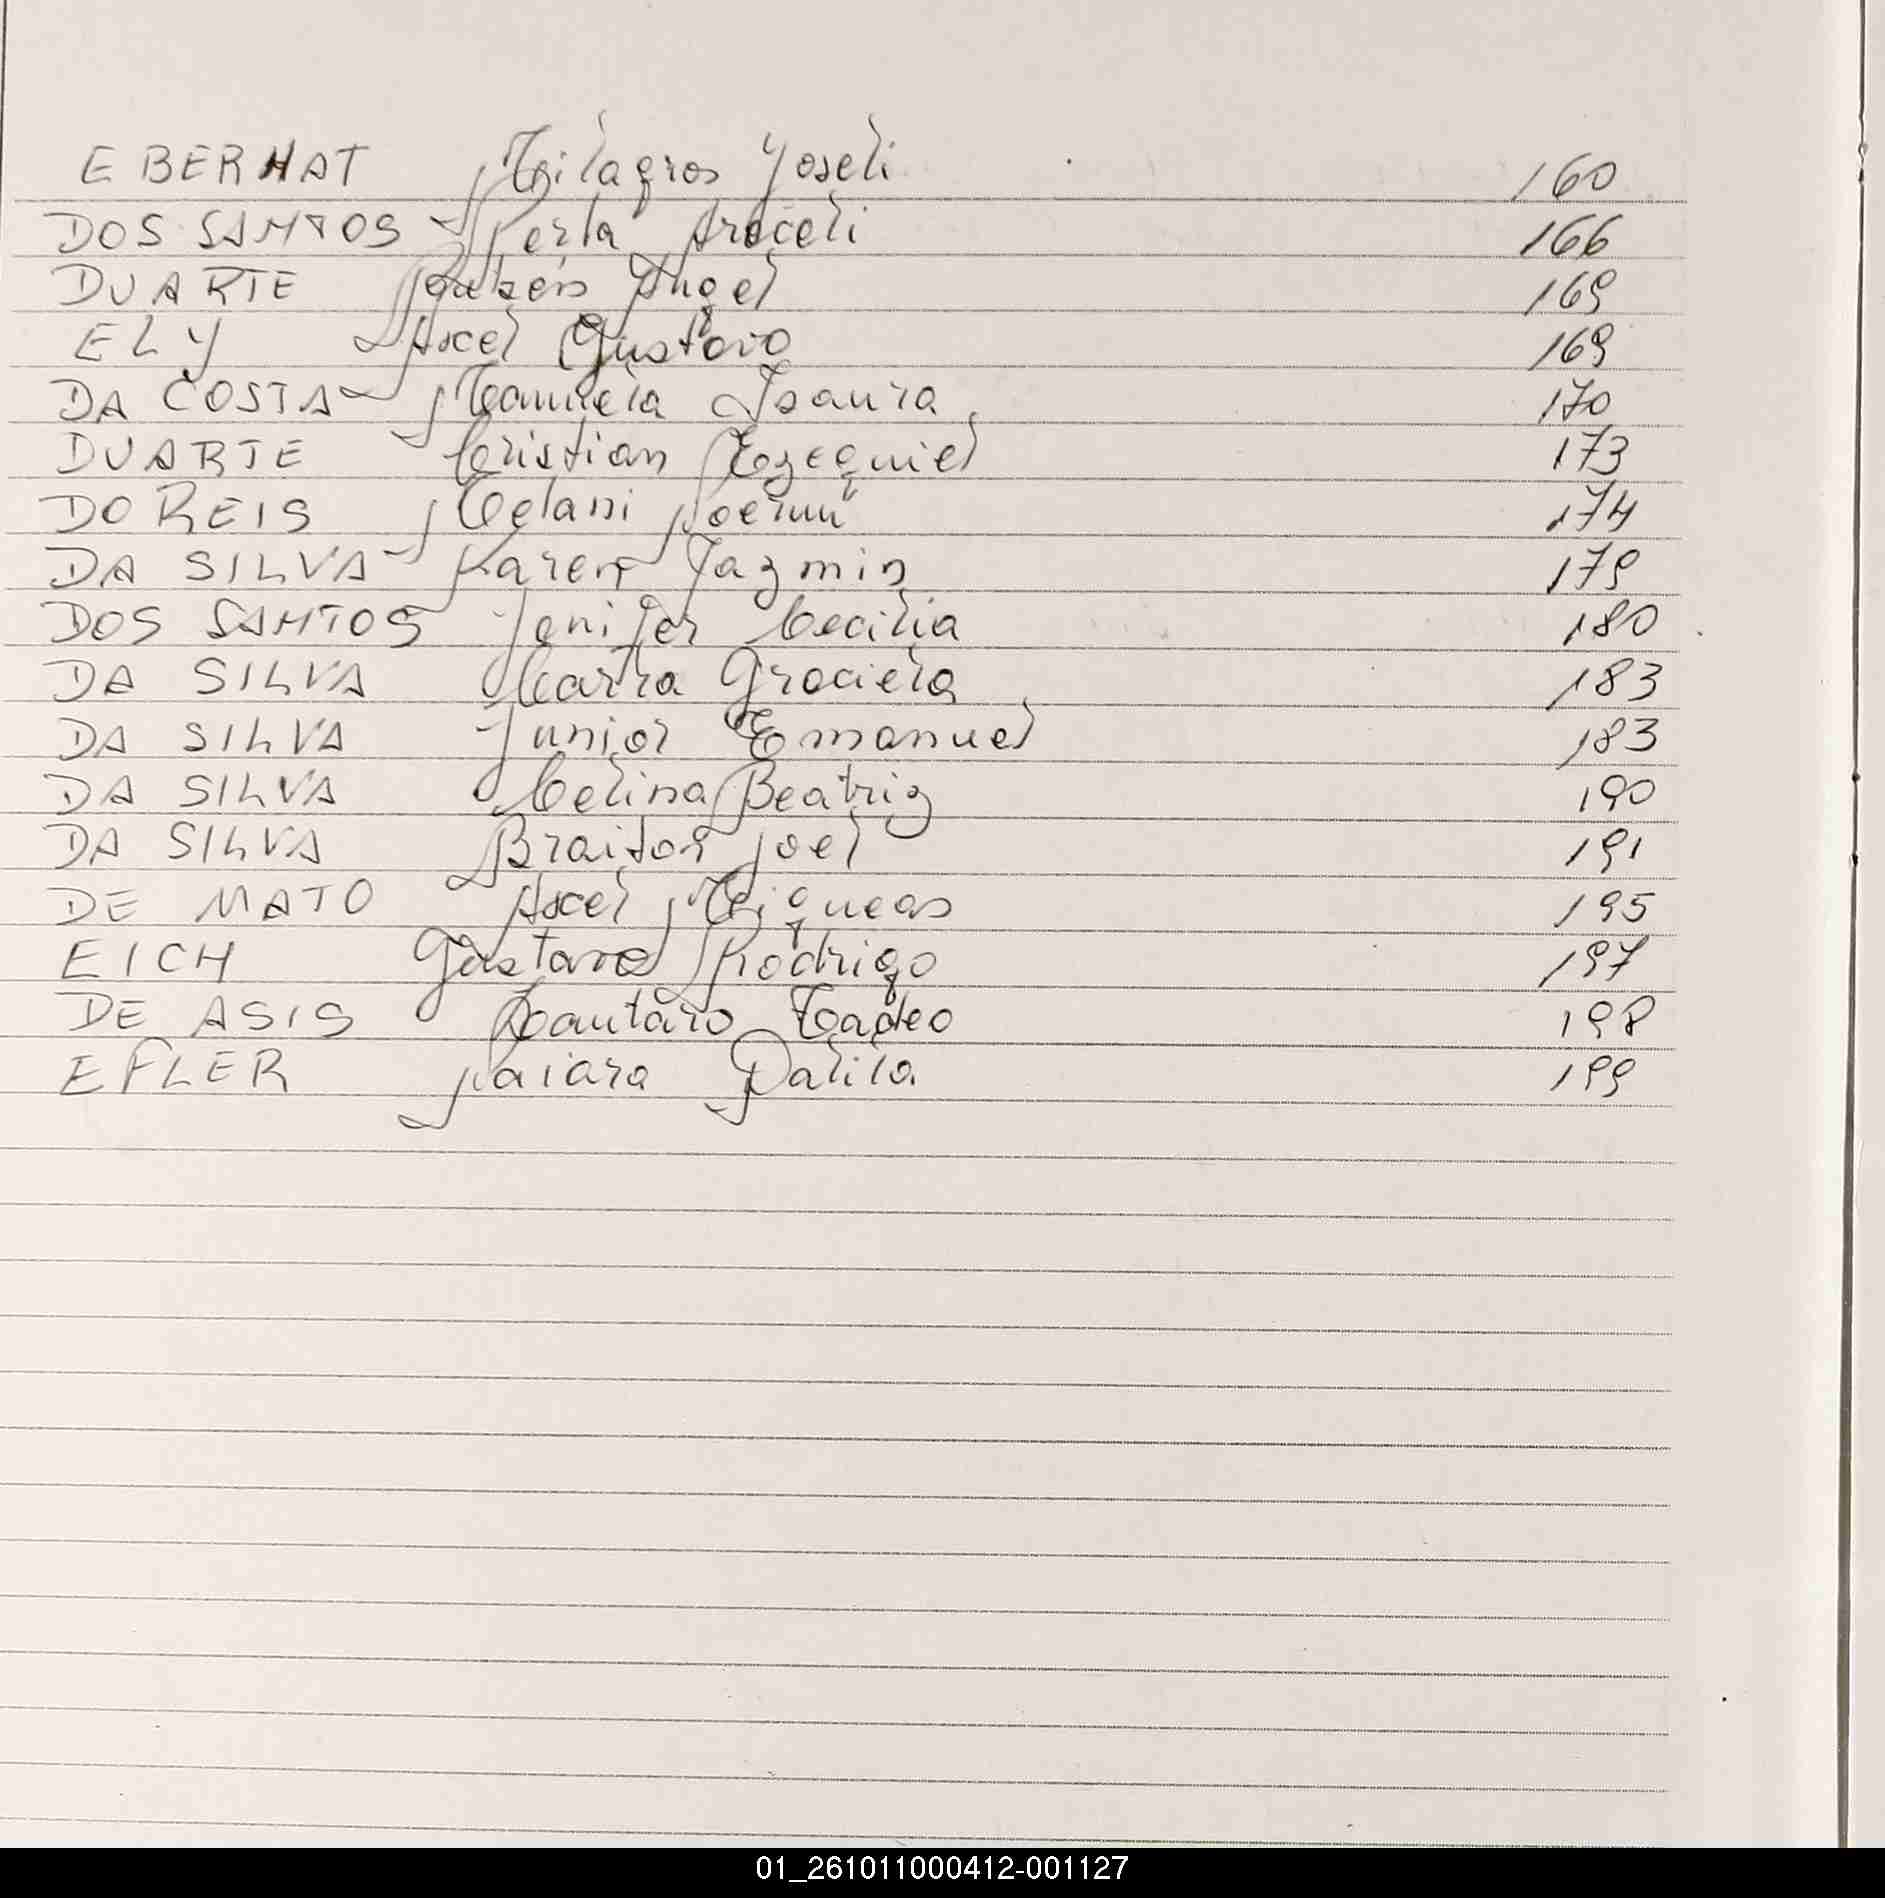 EBERHAT Milagros Yoseli 160
DOS SANTOS Perla Araceli 166
DUARTE Rubén Angel 169
ELY Axcel Gustavo 169
DA COSTA Manuela Isaura 170
DUARTE Cristian Ezequiel 173
DO REIS Melani Noemi 174
DA SILVA Karen Jazmin 179
DOS SANTOS Jenifer Cecilia 180
DA SILVA Maria Graciela 183
DA SILVA Junior Emanuel 183
DA SILVA Celina Beatriz 190
DA SILVA Braiton Joel 191
DE MATO Axcel Miqueas 195
EICH Gustavo Rodrigo 197
DE ASIS Lautaro Tadeo 198
EFLER Naiara Dalila 199
01_261011000412-001127